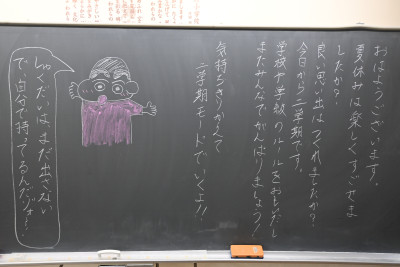 おはようございます。
夏休みは楽しくすごせま
したか？
良い思い出はつくれましたか？
今日から二学期です。
学校や学級のルールをおもいだし
まだみんなでがんばりましょう！
気持ちきりかえて
二学期モードでいくよ！！
しゅくだいは、まだ出さない
で、自分で持ってるんだゾォ！